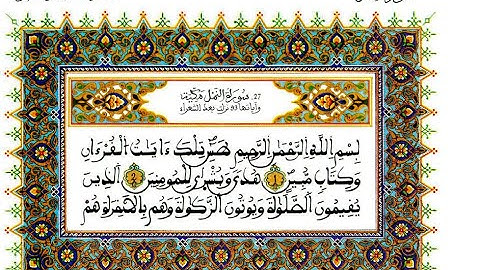 27. سورة النمل مكية
وآياتها 93 نزلت بعد الشعراء
بسم الله الرحمن الرحيم طس تلك ءايات القرءان
وكتاب مبين 1 هدى وبشرى للمومنين 2 الذين
يقيمون الصلوة ويوتون الزكوة وهم بالاخرة هم